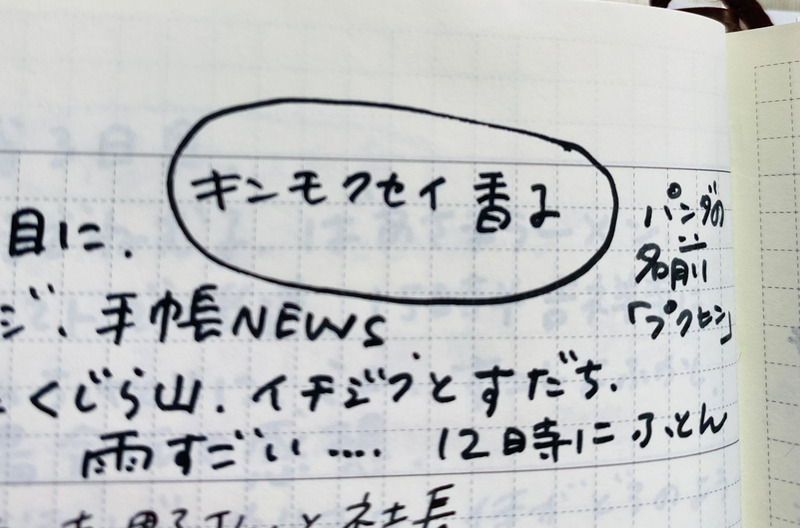 キンモクセイ香る
目に.
パンダの
名前
「プクヒン」
ジ、手帳NEWS
くじら山.イチジクとすだち.
雨すごい.... 12時にふとん
と社長